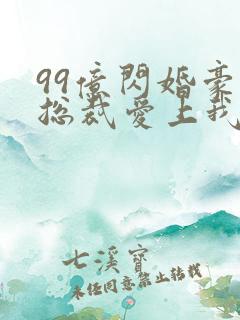 99億閃婚豪
总裁愛上我
七溪寶
未經同意禁止轉載